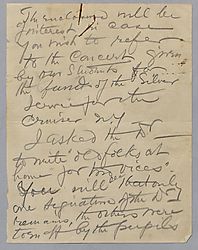 The enclosed will be
of interest in case
you wish to refer
to the Concert given
by our Students
the fund of the "Silver
Service for the
Cruiser N.Y.
I asked the Dr
to write old folks at
home for two voices.
You will that only
one signature of the Dr
remains, the others were
torn off by the pupils